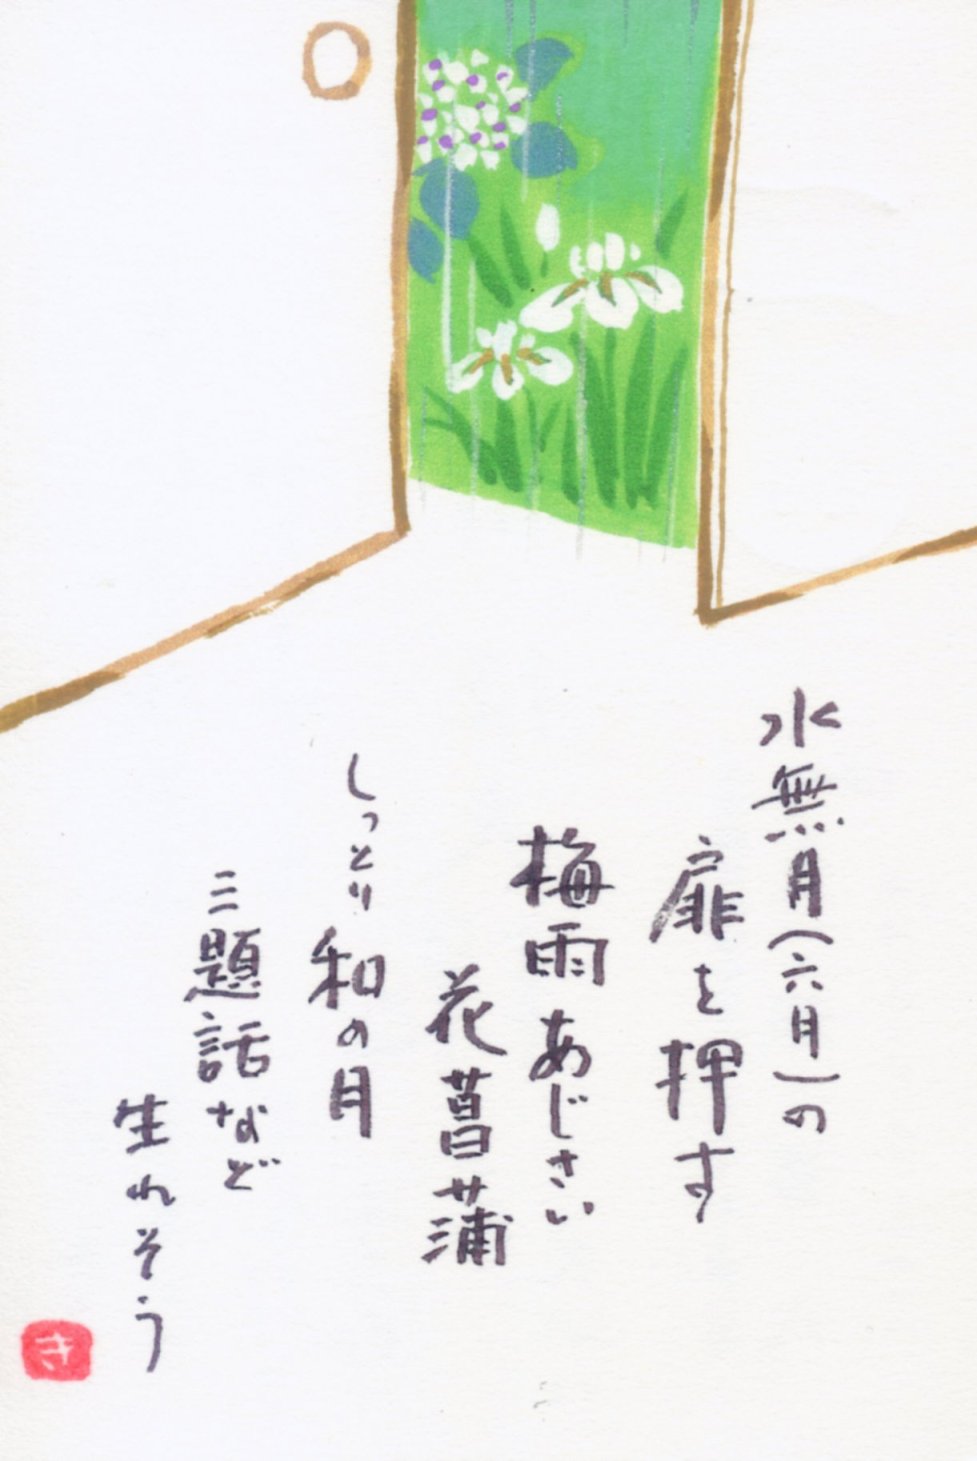 水無月(六月)の
扉を押す
梅雨あじさい
花菖蒲
しっとり和の月
三題話など
生れそう
き